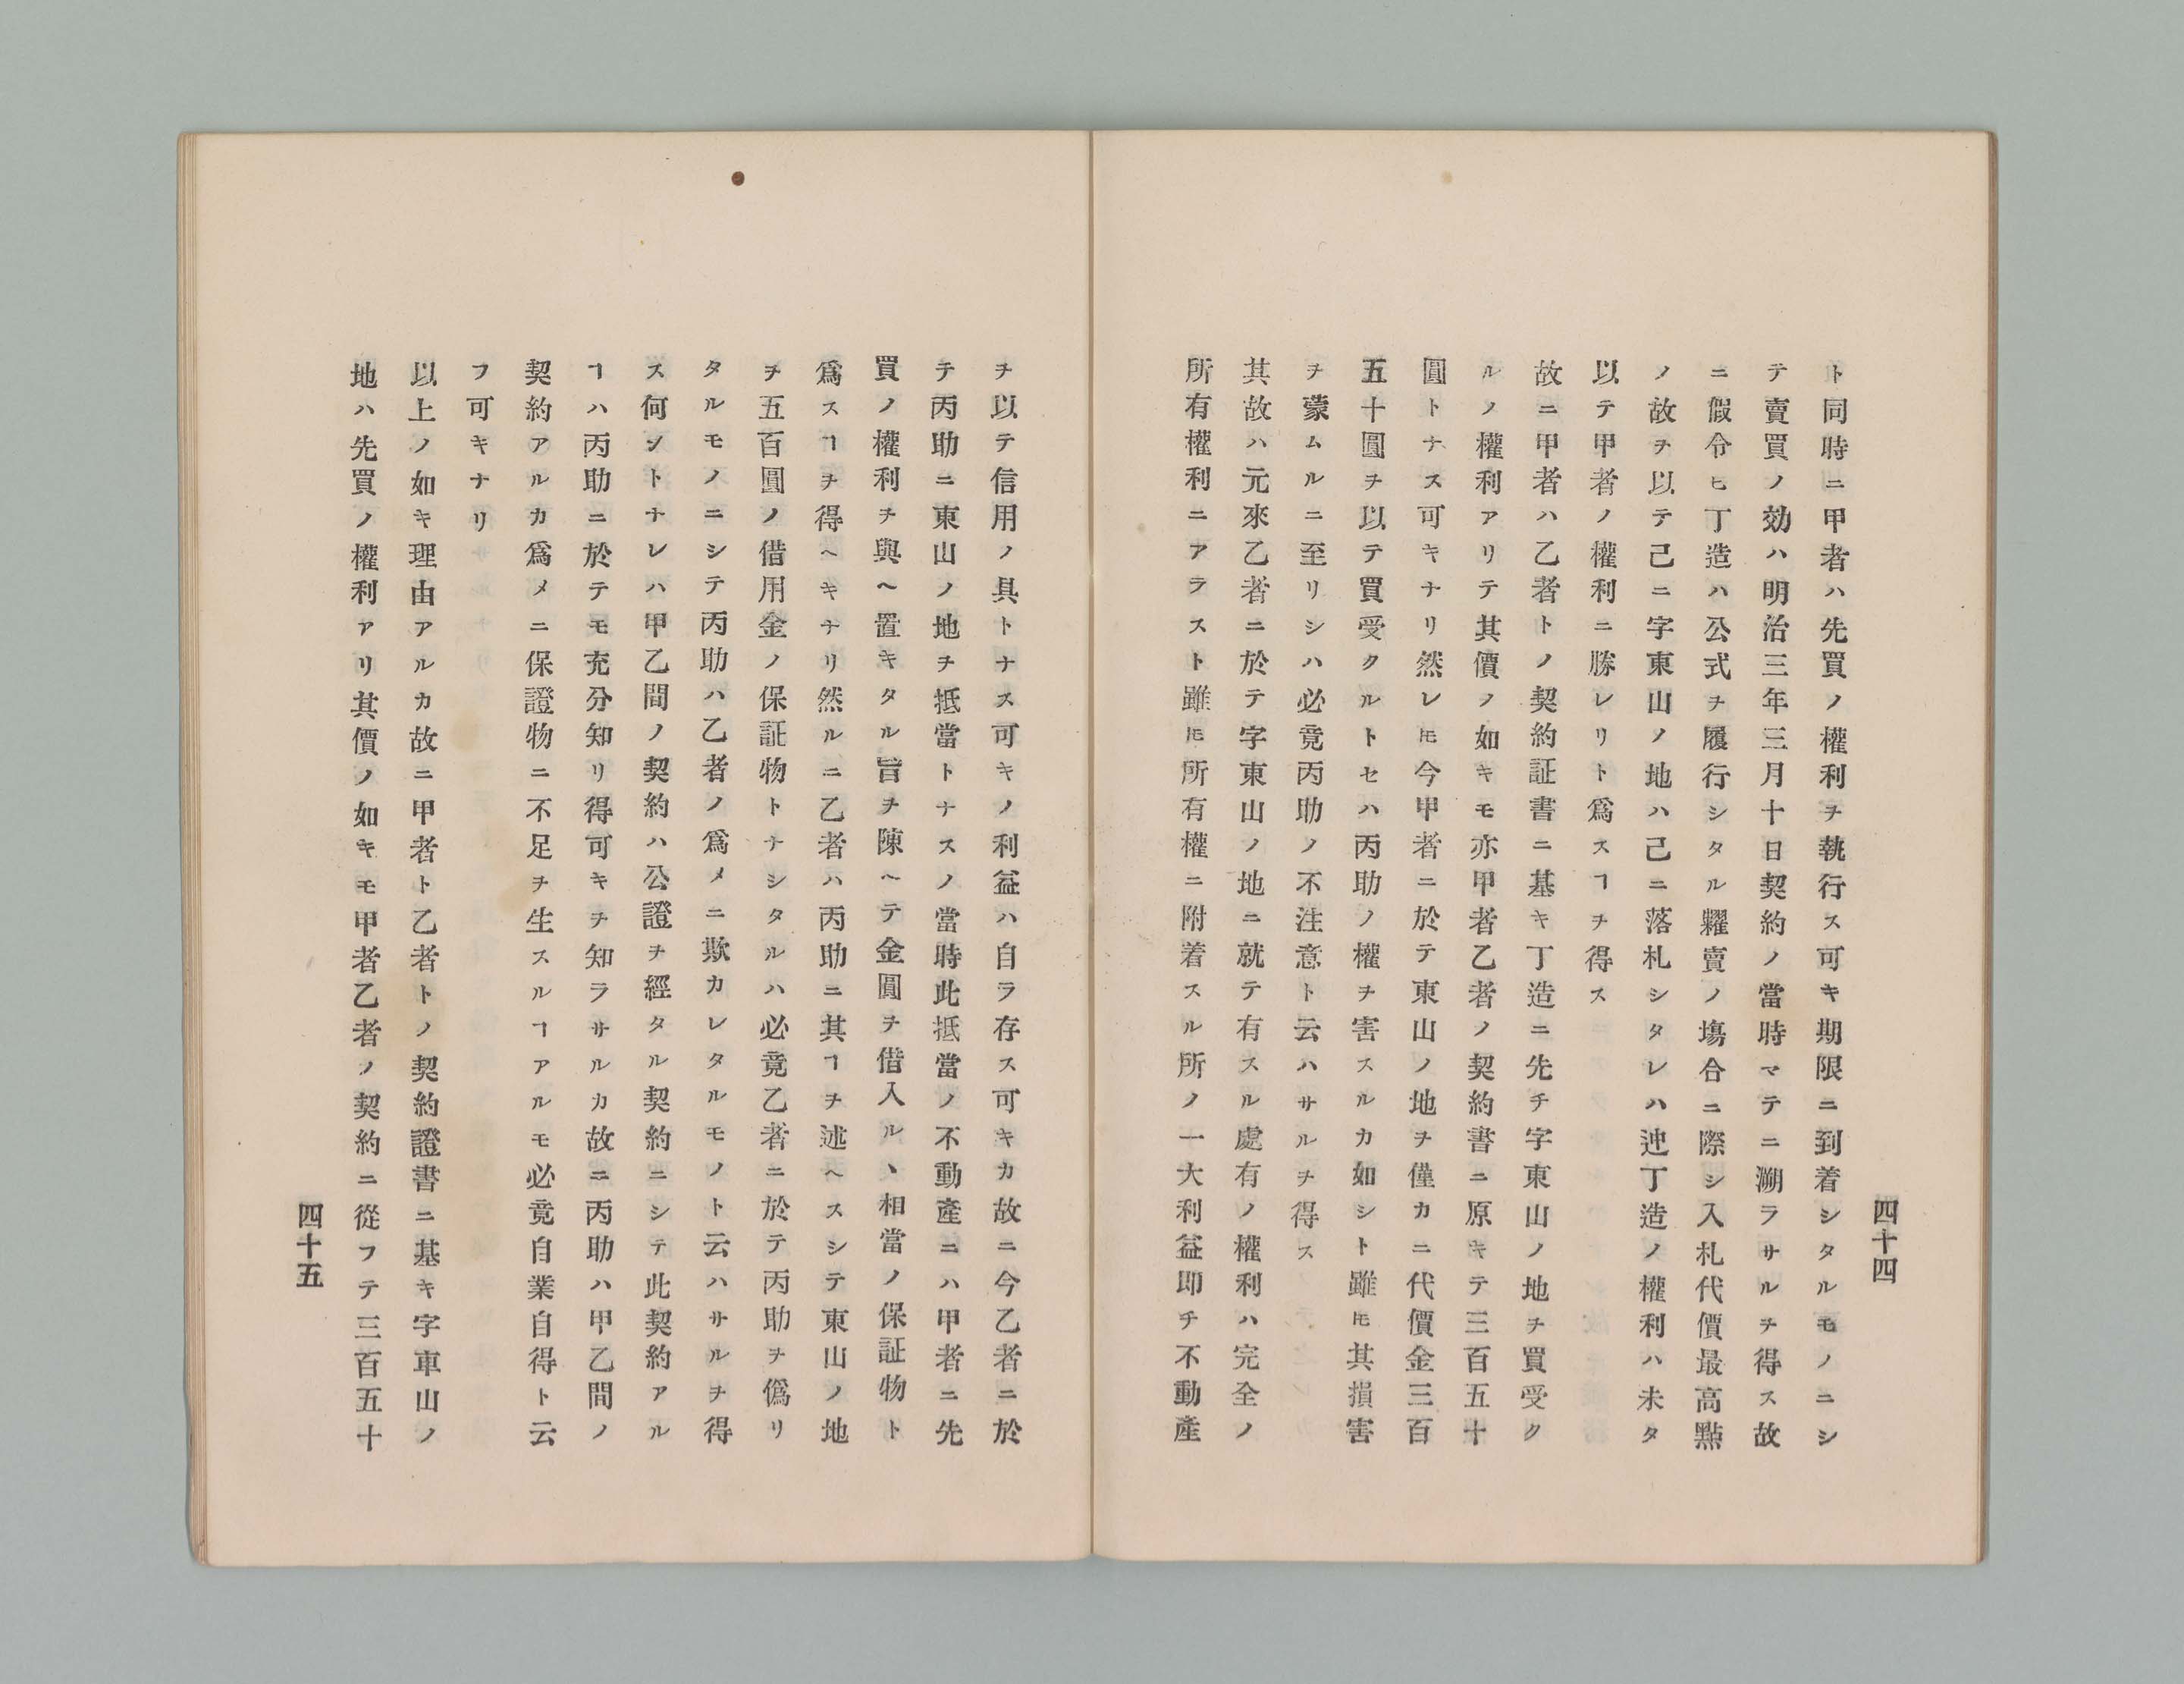 四十四
ト同時ニ甲者ハ先買ノ權利ヲ執行ス可キ期限ニ到着シタルモノニシ
テ賣買ノ効ハ明治三年三月十日契約ノ當時マテニ溯ラサルヲ得ス故
ニ假令ヒ丁造ハ公式ヲ履行シタル糶賣ノ塲合ニ際シ入札代價最高點
ノ故ヲ以テ己ニ字東山ノ地ハ己ニ落札シタレハ迚丁造ノ權利ハ未タ
以テ甲者ノ權利ニ勝レリト爲スヿヲ得ス
故ニ甲者ハ乙者トノ契約証書ニ基キ丁造ニ先チ字東山ノ地ヲ買受ク
ルノ權利アリテ其價ノ如キモ亦甲者乙者ノ契約書ニ原キテ三百五十
圓トナス可キナリ然レ𪜈今甲者ニ於テ東山ノ地ヲ僅カニ代價金三百
五十圓ヲ以テ買受クルトセハ丙助ノ權ヲ害スルカ如シト雖𪜈其損害
ヲ蒙ムルニ至リシハ必竟丙助ノ不注意ト云ハサルヲ得ス
其故ハ元來乙者ニ於テ字東山ノ地ニ就テ有スル處有ノ權利ハ完全ノ
所有權利ニアラスト雖𪜈所有權ニ附着スル所ノ一大利益即チ不動產
ヲ以テ信用ノ具トナス可キノ利益ハ自ラ存ス可キカ故ニ今乙者ニ於
テ丙助ニ東山ノ地ヲ抵當トナスノ當時此抵當ノ不動產ニハ甲者ニ先
買ノ權利ヲ與ヘ置キタル旨ヲ陳ヘテ金圓ヲ借入ルヽ相當ノ保証物ト
爲スヿヲ得ヘキナリ然ルニ乙者ハ丙助ニ其ヿヲ述ヘスシテ東山ノ地
ヲ五百圓ノ借用金ノ保証物トナシタルハ必竟乙者ニ於テ丙助ヲ僞リ
タルモノニシテ丙助ハ乙者ノ爲メニ欺カレタルモノト云ハサルヲ得
ス何ントナレハ甲乙間ノ契約ハ公證ヲ經タル契約ニシテ此契約アル
ヿハ丙助ニ於テモ充分知リ得可キヲ知ラサルカ故ニ丙助ハ甲乙間ノ
契約アルカ爲メニ保證物ニ不足ヲ生スルヿアルモ必竟自業自得ト云
フ可キナリ
以上ノ如キ理由アルカ故ニ甲者ト乙者トノ契約證書ニ基キ字車山ノ
地ハ先買ノ權利アリ其價ノ如キモ甲者乙者ノ契約ニ從フテ三百五十
四十五